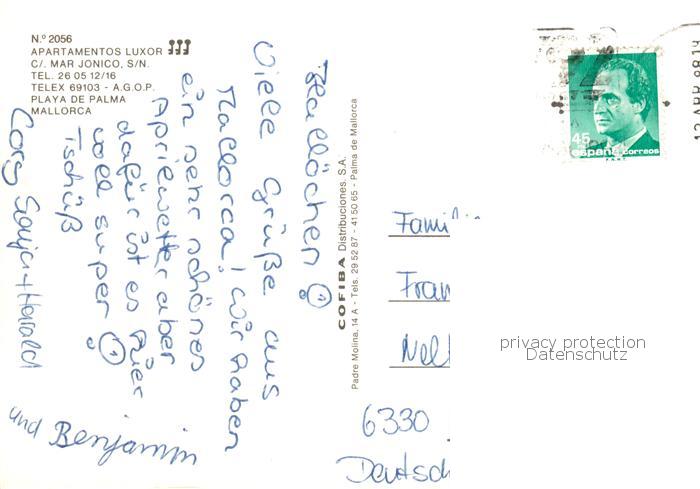 N.º 2056
APARTAMENTOS LUXOR
C/. MAR JONICO, S/N.
TEL. 26 05 12/16
TELEX 69103 - A.G.O.P.
PLAYA DE PALMA
MALLORCA
Hallöchen!
Vielle Grüße aus
Mallorca! Wir haben
ein sehr schönes
Aprilwetter aber
dafür ist es hier
voll super!
Tschüß
Sonja + Harald
und Benjamin
COFIBA Distribuciones, S.A.
Padre Molina, 14 A - Tels. 29 52 87 - 41 50 65 - Palma de Mallorca
45
españa correos
Fami
Fran
Nell
6330
Deutsch
privacy protection
Datenschutz